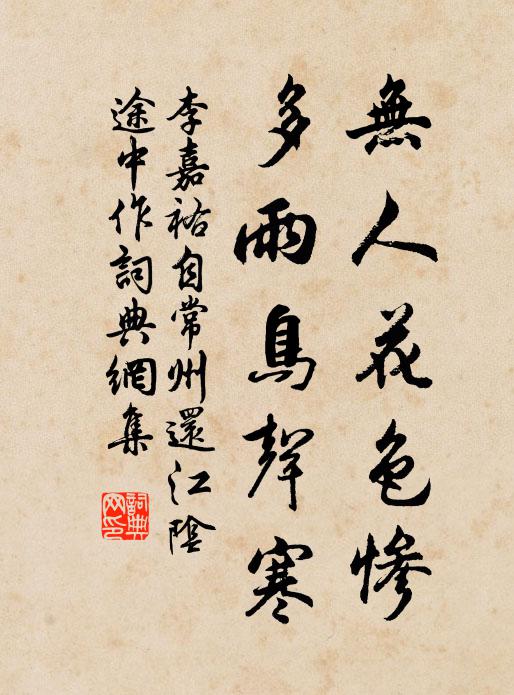 無人花色慘
多雨鳥聲寒
李嘉祐自常州還江陰
途中作詞典網集
詞典网印